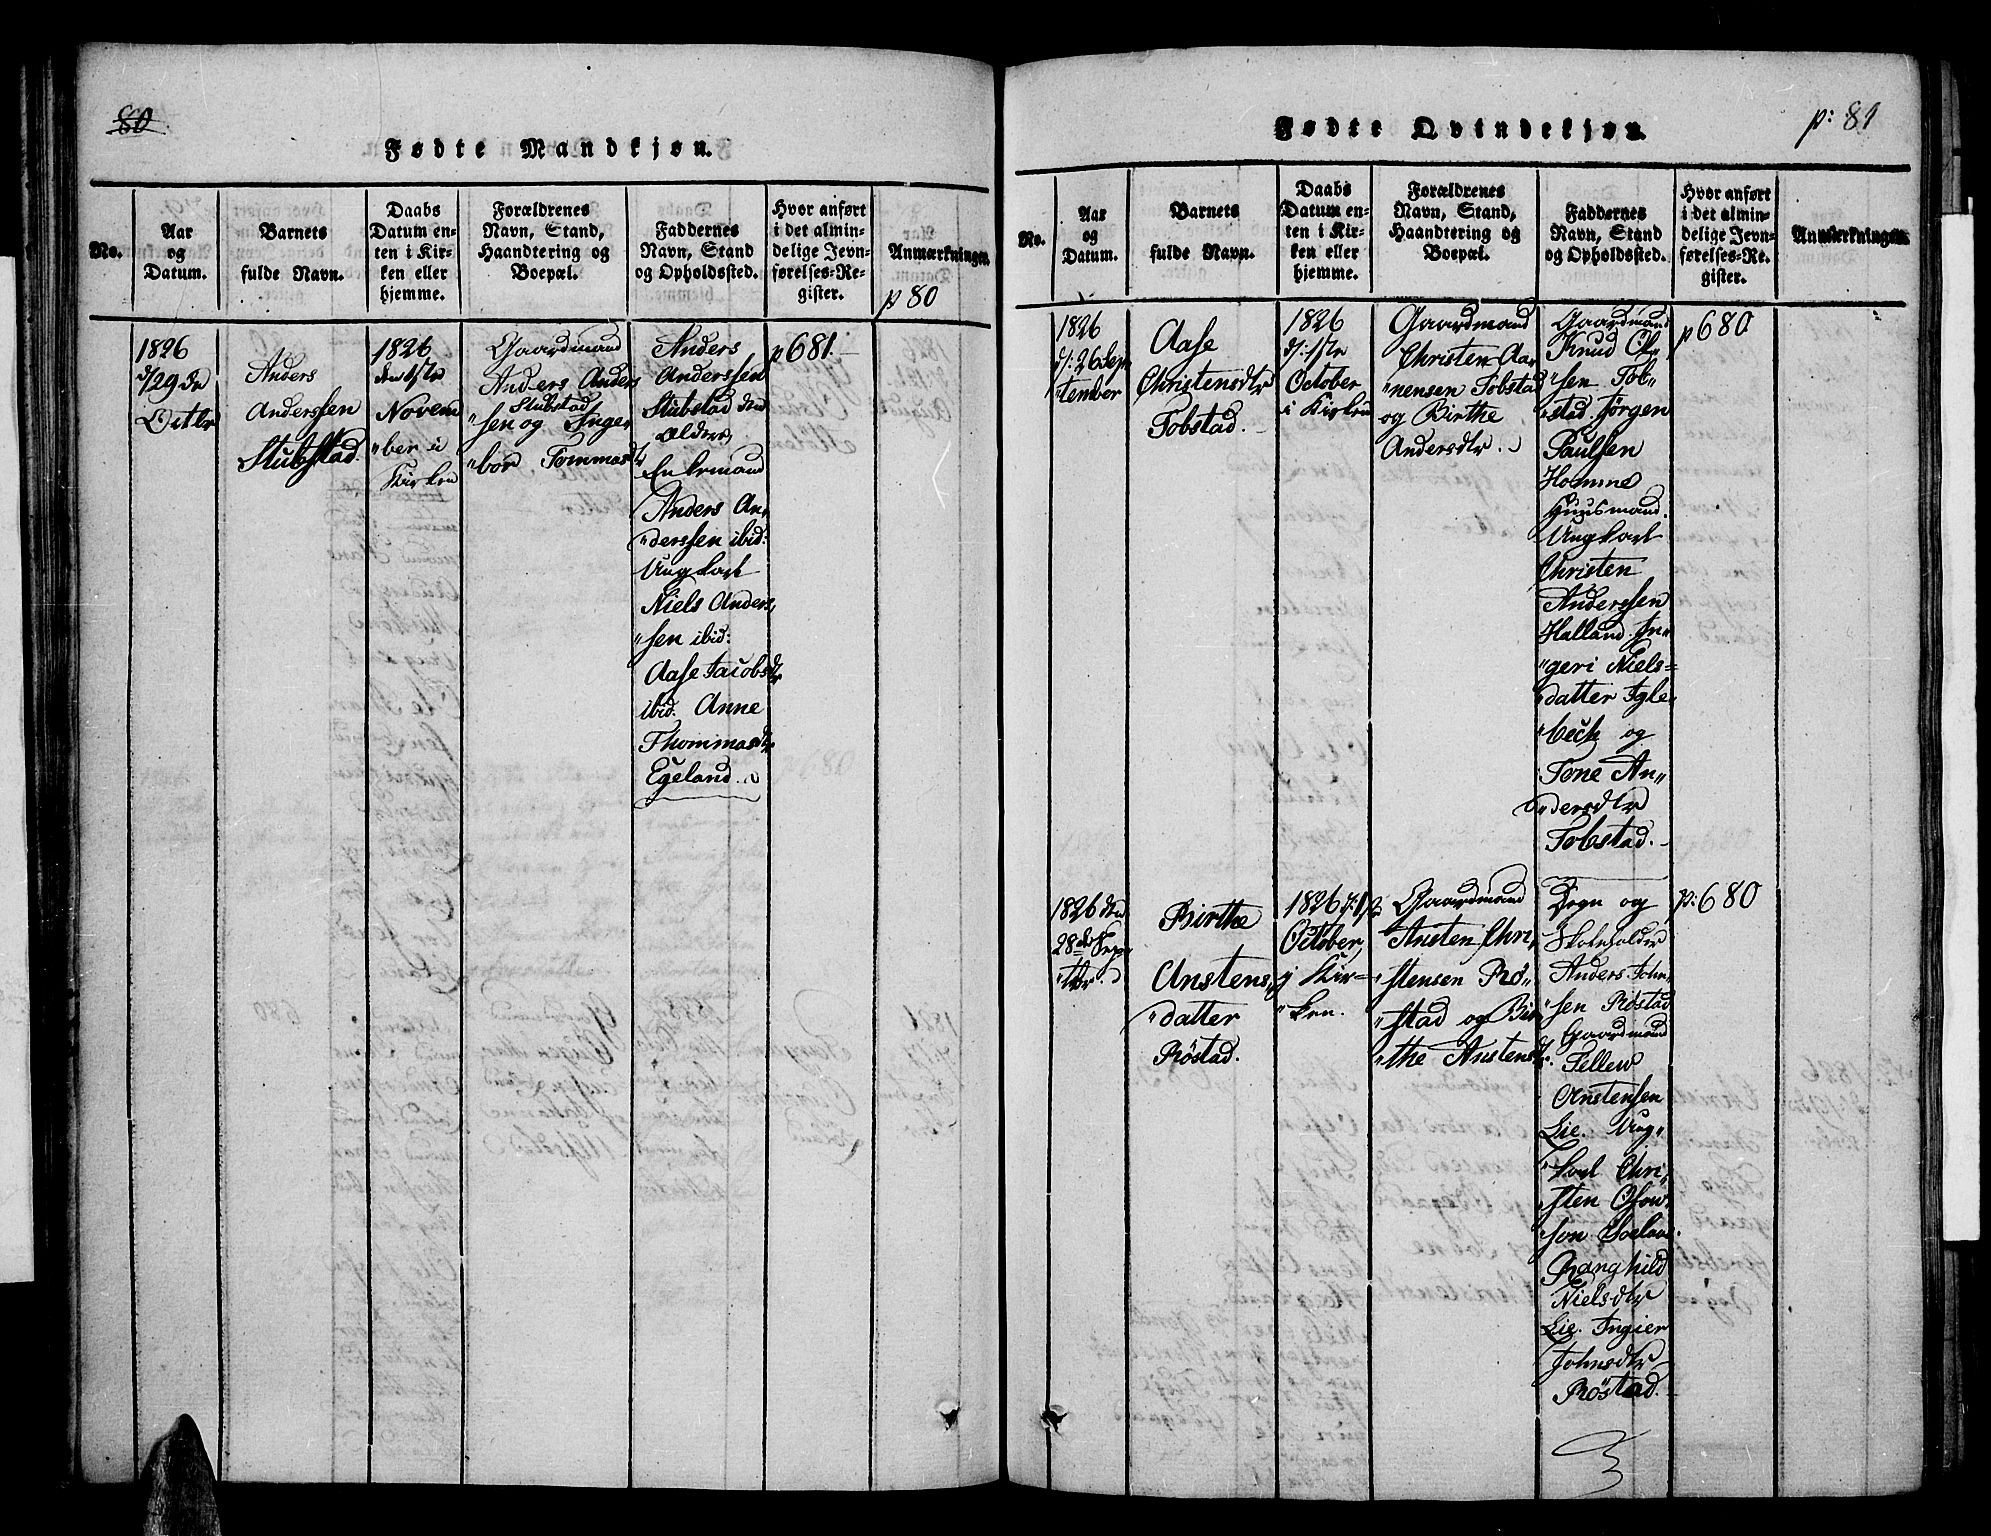 80
Fødte Mandkjøn.
No.
Aar
og
Datum.
Barnets
fulde Navn.
Daabs
Datum en-
ten i Kir-
ken eller
hjemme.
Forældrenes
Navn, Stand,
Haandtering og
Boepæl.
Faddernes
Navn, Stand
og Opholdssted.
Hvor anført
i det almin-
delige Jevn-
førelses-Re-
gister.
Anmærkninger.
p 80
1826
d/29 de
Octbr
Anders
Anderssen
Stubstad.
1826
den 1ste
Novem
"ber i
Kirken
Gaardmand
Anders Anders
Stubstad
"sen og Inge,
"bor Tommasdtr
Anders
Anderssen
Stubstad den
Ældre,
Enkemand
Anders An,
"derssen ibid:
Ungkarl
Niels Anders,
"sen ibid:
Aase Jacobsdtr
ibid. Anne
Thommasdtr
Egeland.
p 681.
p: 81
Fødte Qvindekjøn.
No.
Aar
og
Datum.
Barnets
fulde Navn.
Daabs
Datum en-
ten i Kir-
ken eller
hjemme.
Forældrenes
Navn, Stand,
Haandtering og
Boepæl.
Faddernes
Navn, Stand
og Opholdssted.
Hvor anført
i det almin-
delige Jevn-
førelses-Re-
gister.
Anmærkninger.
1826
d: 26 Sep
"tember
Aase
Christensdtr
Tobstad.
1826
d: 1ste
October
i Kirken
Gaardmand
Christen Aa,
"nensen Tobstad
og Birthe
Andersdtr.
Gaardmand
Knud Ol,
"sen Tob,
"stad. Jørgen
Paulsen
Homme
Huusmand.
Ungkarl
Christen
Anderssen
Halland. In,
"geri Niels=
"datter Igle
"bech og
Tone An,
"dersdtr
Tobstad.
p 680
1826 den
28de Sep
"tbr.
Birthe
Anstens,
"datter
Røstad.
1826 d: 1ste
October,
i Kir=
"ken.
Gaardmand
Ansten Chri,
"stensen Rø,
"stad og Bir
"the Anstensdtr.
Degn og
Skoleholder
Anders John,
"sen Røstad
Gaardmand
Tellew
Anstensen
Lie. Ung,
"karl Chri,
"sten Osow,
"son
Ranghild
Nielsdtr
Lie. Ingier
Johnsdtr
Røstad.
p: 680